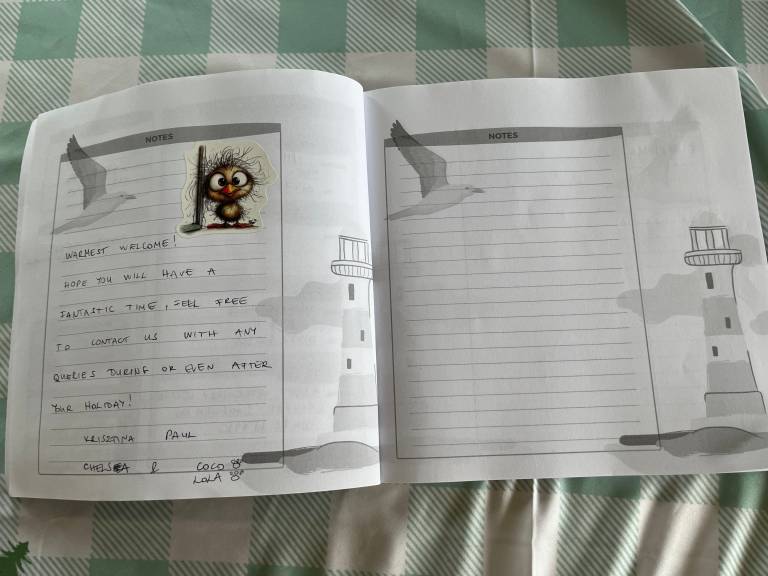 NOTES
WARMEST WELCOME!
HOPE YOU WILL HAVE A
FANTASTIC TIME, FEEL FREE
TO CONTACT US WITH ANY
QUERIES DURING OR EVEN AFTER
YOUR HOLIDAY!
KRISZTINA PAUL
CHELSEA & COCO
LOLA
NOTES